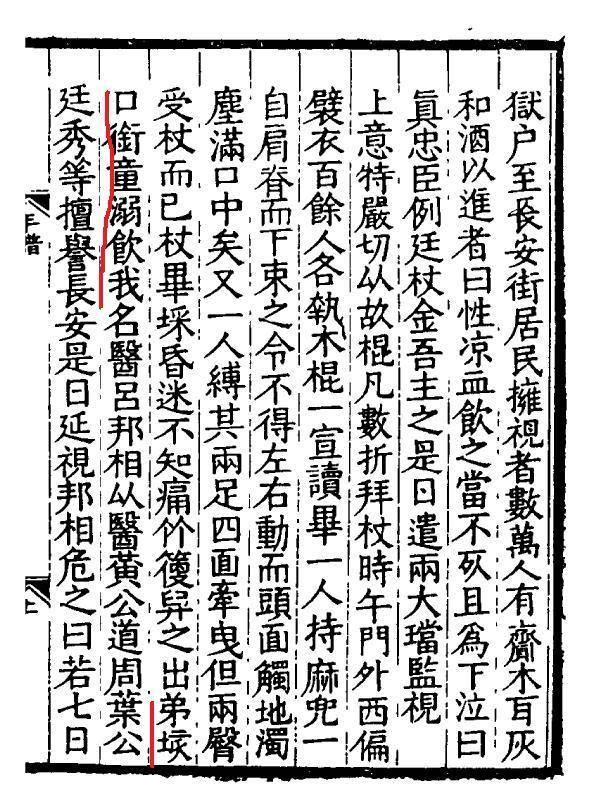 獄户至長安街居民擁視者數萬人有齎木耳灰
和酒以進者曰性凉血飲之當不死且爲下泣曰
眞忠臣例廷杖金吾主之是日遣兩大璫監視
上意特嚴切以故棍凡數折拜杖時午門外西偏
襞衣百餘人各執木棍一宣讀畢一人持麻兜一
自肩脊而下束之令不得左右動而頭面觸地濁
塵滿口中矣又一人縛其兩足四面牽曳但兩臀
受杖而已杖畢埰昏迷不知痛价復舁之出弟垓
口銜童溺飲我名醫呂邦相以醫黃公道周葉公
廷秀等擅譽長安是日延視邦相危之曰若七日
年譜